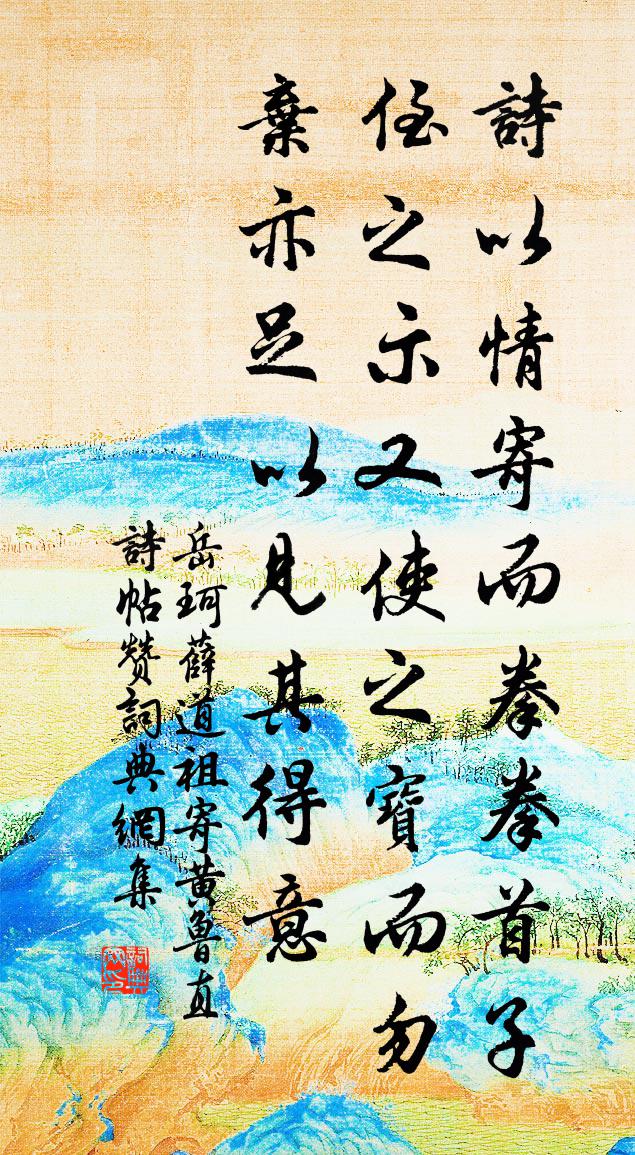 詩以情寄而拳拳首子
侄之示又使之寶而勿
棄亦足以見其得意
岳珂薛道祖寄黄魯直
詩帖赞詞典網集